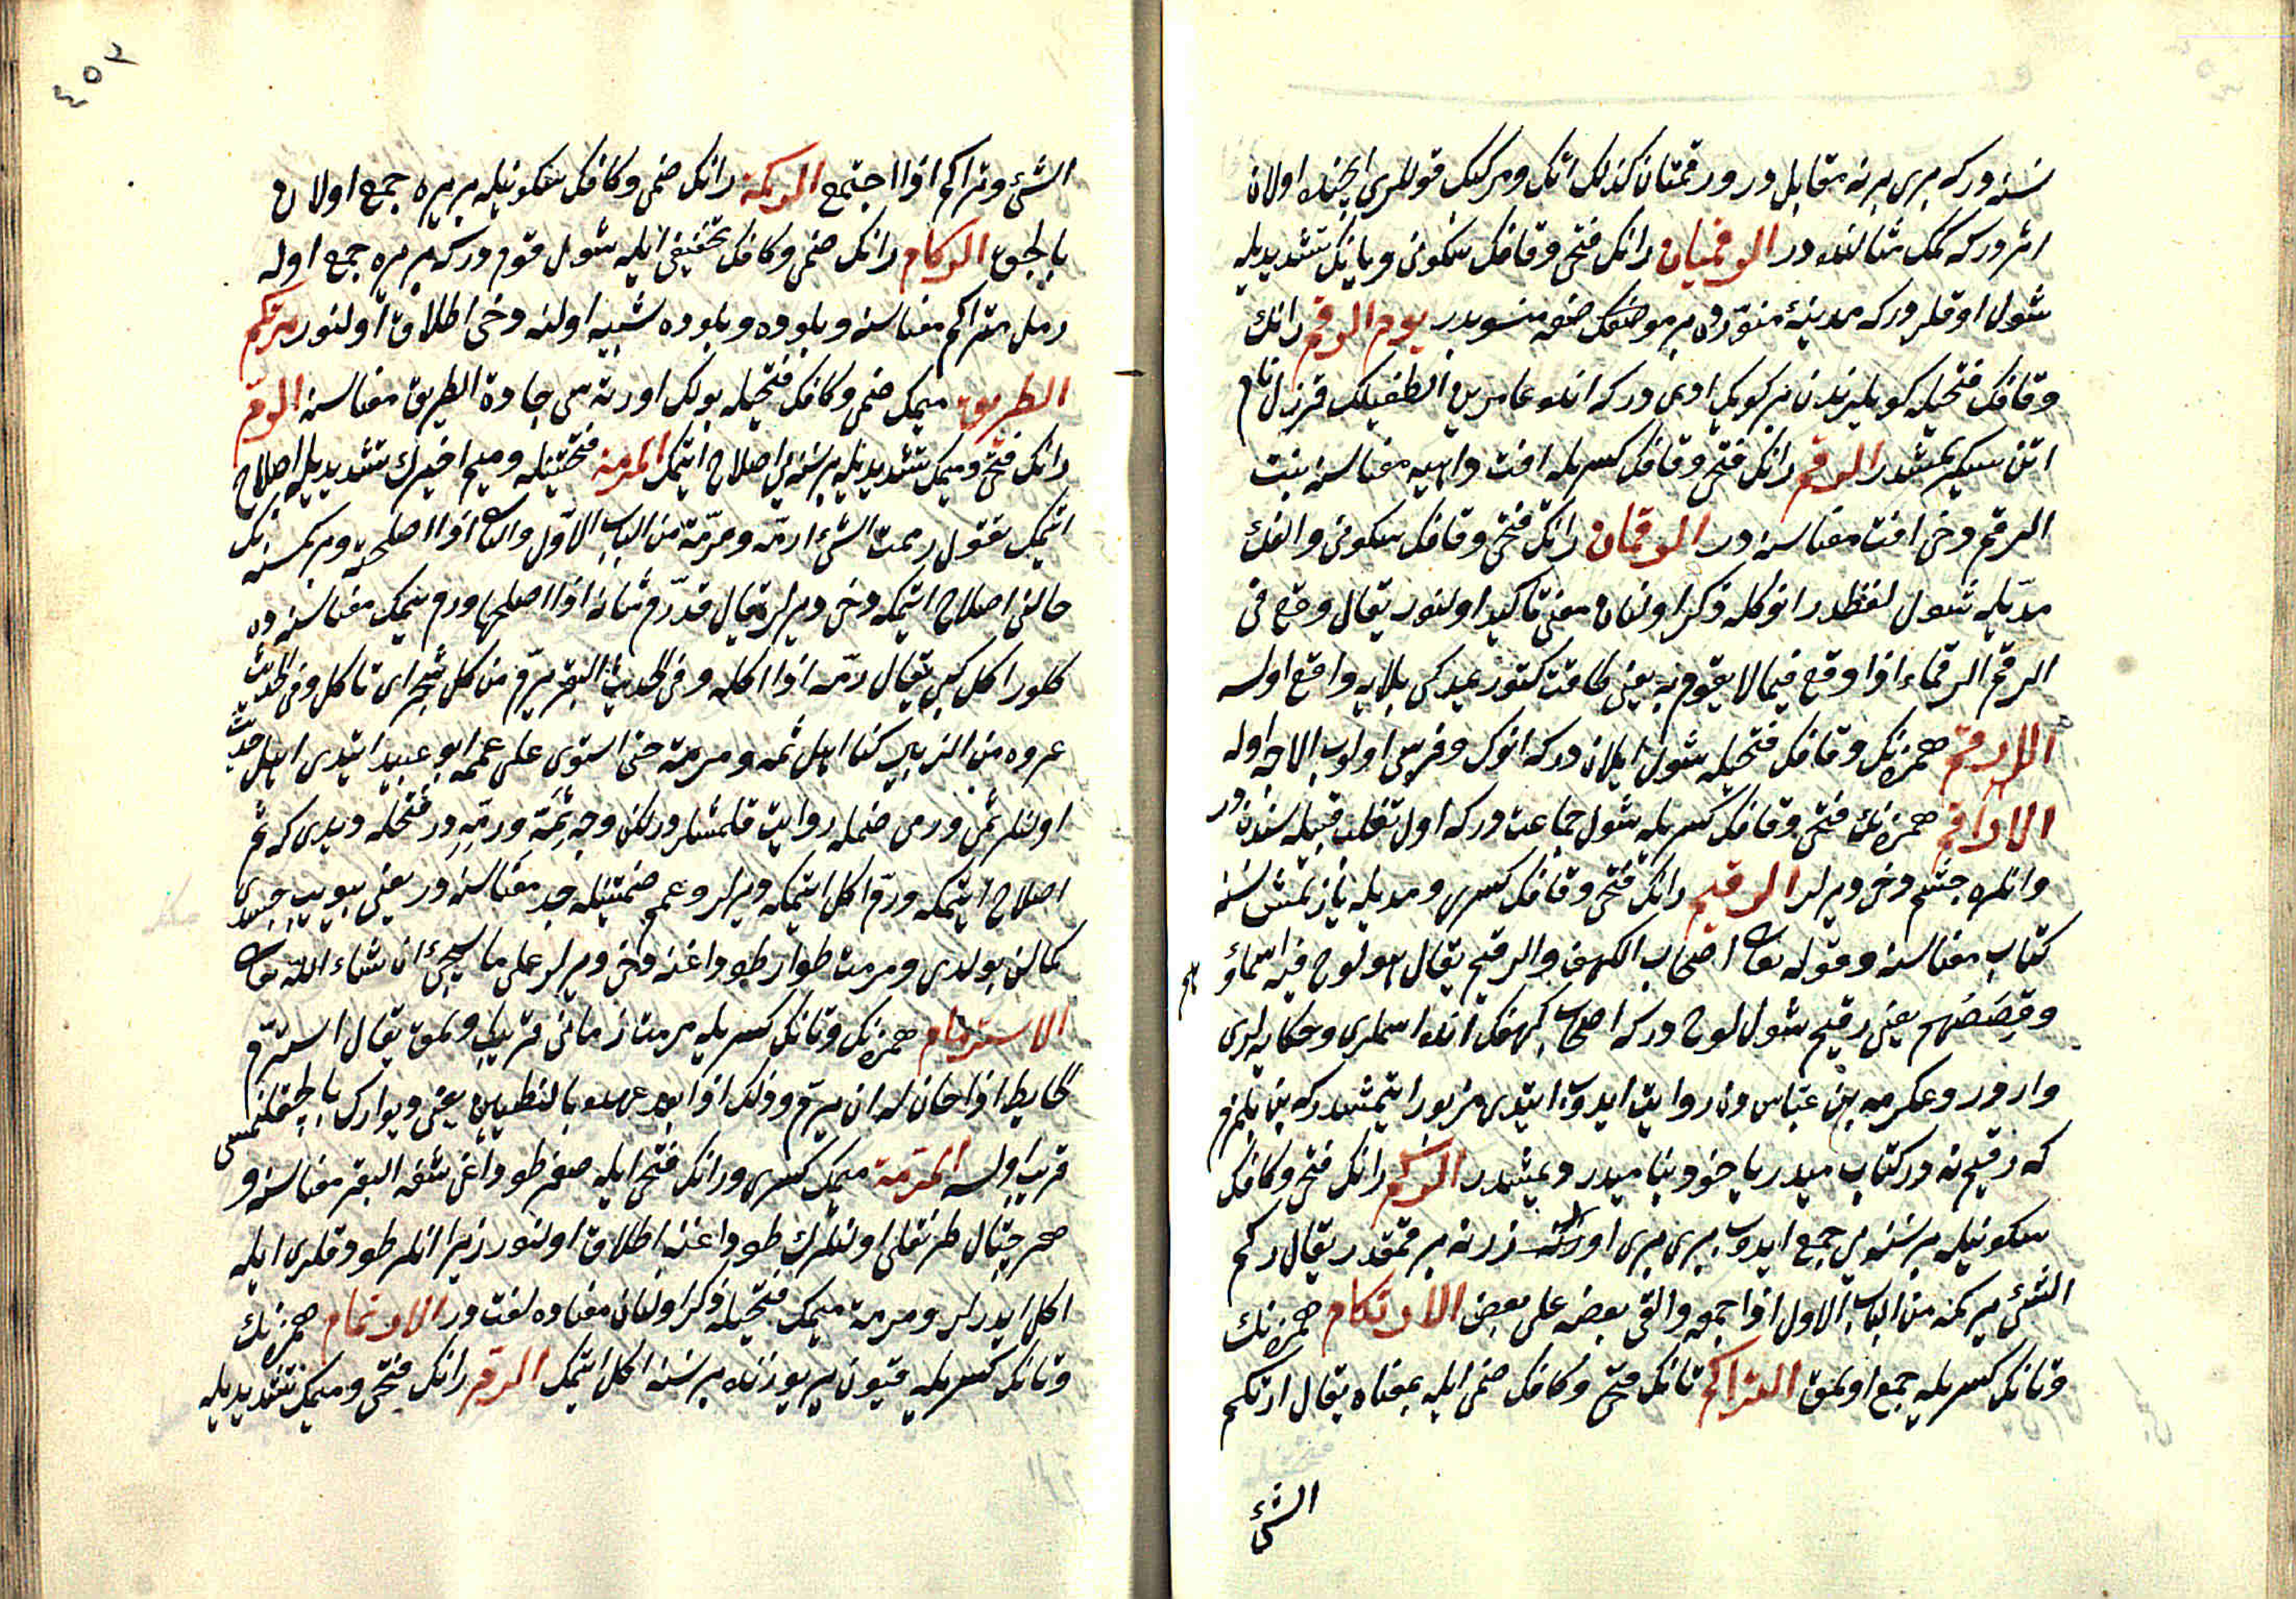 نسنه دركه برى برنه مقابل در ورقمتان كذلك اتك ومركبك قوللرى ايچنده اولان
اثر دركه كمك مثالنده در الرقميات رانك فتحى وقافك سكونى ويانك تشديديله
شول اوقلر دركه مدينهٔ منوّره ده بر موضعك صنعنه منسوبدر يوم الرقم رانك
وقافك فتحيله كونلرندن بر كونك اديدر كه انده عامر بن الطفيلك قرزل نام
اتن سكرتمشدر الرقم رانك فتحى وقافك كسريله افت وداهيه معناسنه بنت
الرقم دخى افت معناسنه در الرقمان رانك فتحى وقافك سكونى والفك
مدّيله شول لفظدر انوكله ذكر اولنان معنى تاكيد اولنور يقال وقع فى
الرقم الرقماء اذا وقع فيما لا يقوم به يعنى طاقت كتورميدكى بلايه واقع اولسه
الارقم همزنك وقافك فتحيله شول ييلان دركه انوك وقرسى اولوب الاجه اوله
الاراقم همزه نك فتحى وقافك كسريله شول جماعت دركه اول تغلب قبيله سندن در
وانلره جشم دخى ديرلر الرقيم رانك فتحى وقافك كسرى ومديله يازلمش نسنه
كتاب معناسنه وقوله تعا اصحاب الكهف والرقيم يقال هو لوح فيه اسماؤهم
وقصصهم يعنى رقيم شول لوح دركه اصحاب كهفك انده اسملرى وحكايه لرى
واردر وعكرمه ابن عباس دن روايت ايدوب ايتدى مزبور ايتمشدر كه بن بلمزم
كه رقيم نه در كتاب ميدر ياخود بنا ميدر ديمشدر الركم رانك فتحى وكافك
سكونيله بر نسنه يى جمع ايدوب برى برى اوزرنه براقمقدر يقال ركم
الشئ يركمه من الباب الاول اذا جمعه والقى بعضه على بعض الارتكام همزنك
وتانك كسريله جمع اولمق التراكم تانك فتحى وكافك ضمى ايله بمعناه يقال ارتكم
الشئ
٤٥٢
الشئ وتراكم اذا اجتمع الركمة رانك ضمى وكافك سكونيله بر يره جمع اولان
بالجق الركام رانك ضمى وكافك تخفيفى ايله شول قوم دركه بر يره جمع اوله
رمل متراكم معناسنه وبلوده وبلوده شبيه اولنه دخى اطلاق اولنور مرتكم
الطريق ميمك ضمى وكافك فتحيله يولك اورته سى جادة الطريق معناسنه الرمّ
رانك فتحى وميمك تشديديله بر نسنه يى اصلاح ايتمك المرمة فتحتيله وميم اخيرك تشديديله اصلاح
ايتمك تقول رممت الشئ ارمّه ومرمّة من الباب الاوّل والثا اذا اصلحته وبر كمسنه نك
حالنى اصلاح ايتمكه دخى ديرلر يقال قد رمّ شانه اذا اصلحها ورم يمك معناسنه ده
كلور اكل كبى يقال رمّه اذا اكله وفى الحديث البقر ترمّ من كل شجر اى تاكل وفى الحديث
عروه بن الزبير كنا اهل ثمه ورمه حتى استوى على عممه ابو عبيد ايتدى اهل حديث
اولنلر ثم ورمى ضمله روايت قلمشلردر لكن وجه ثمّه ورمّه در فتحله ديدى كه ثم
اصلاح ايتمكه ورمّ اكل ايتمكه ديرلر وعمم ضمتيله جد معناسنه در يعنى بيويب جسدى
كمالن بولدى ومرمت طوار طوداغنه دخى ديرلر على ما سيجئ ان شاء الله تعا
الاسترمام همزنك وتانك كسريله مرمت زمانى قريب اولمق يقال استرمّ
الحايط اذا حان له ان يرمّ وذلك اذا بعد عهده بالتطيين يعنى ديوارك بالچقلنمسى
قريب اولسه المرمّة ميمك كسرى ورانك فتحى ايله صغر طوداغى شفه البقر معناسنه و
هر چتال طرنقلى اولنلرك طوداغنه اطلاق اولنور زيرا انلر طودقلرى ايله
اكل ايدرلر ومرمة ميمك فتحيله ذكر اولنان معناده لغتدر الارتمام همزنك
وتانك كسريله قيون ير يوزنده بر نسنه اكل ايتمك الرم رانك فتحى وميمك تشديديله